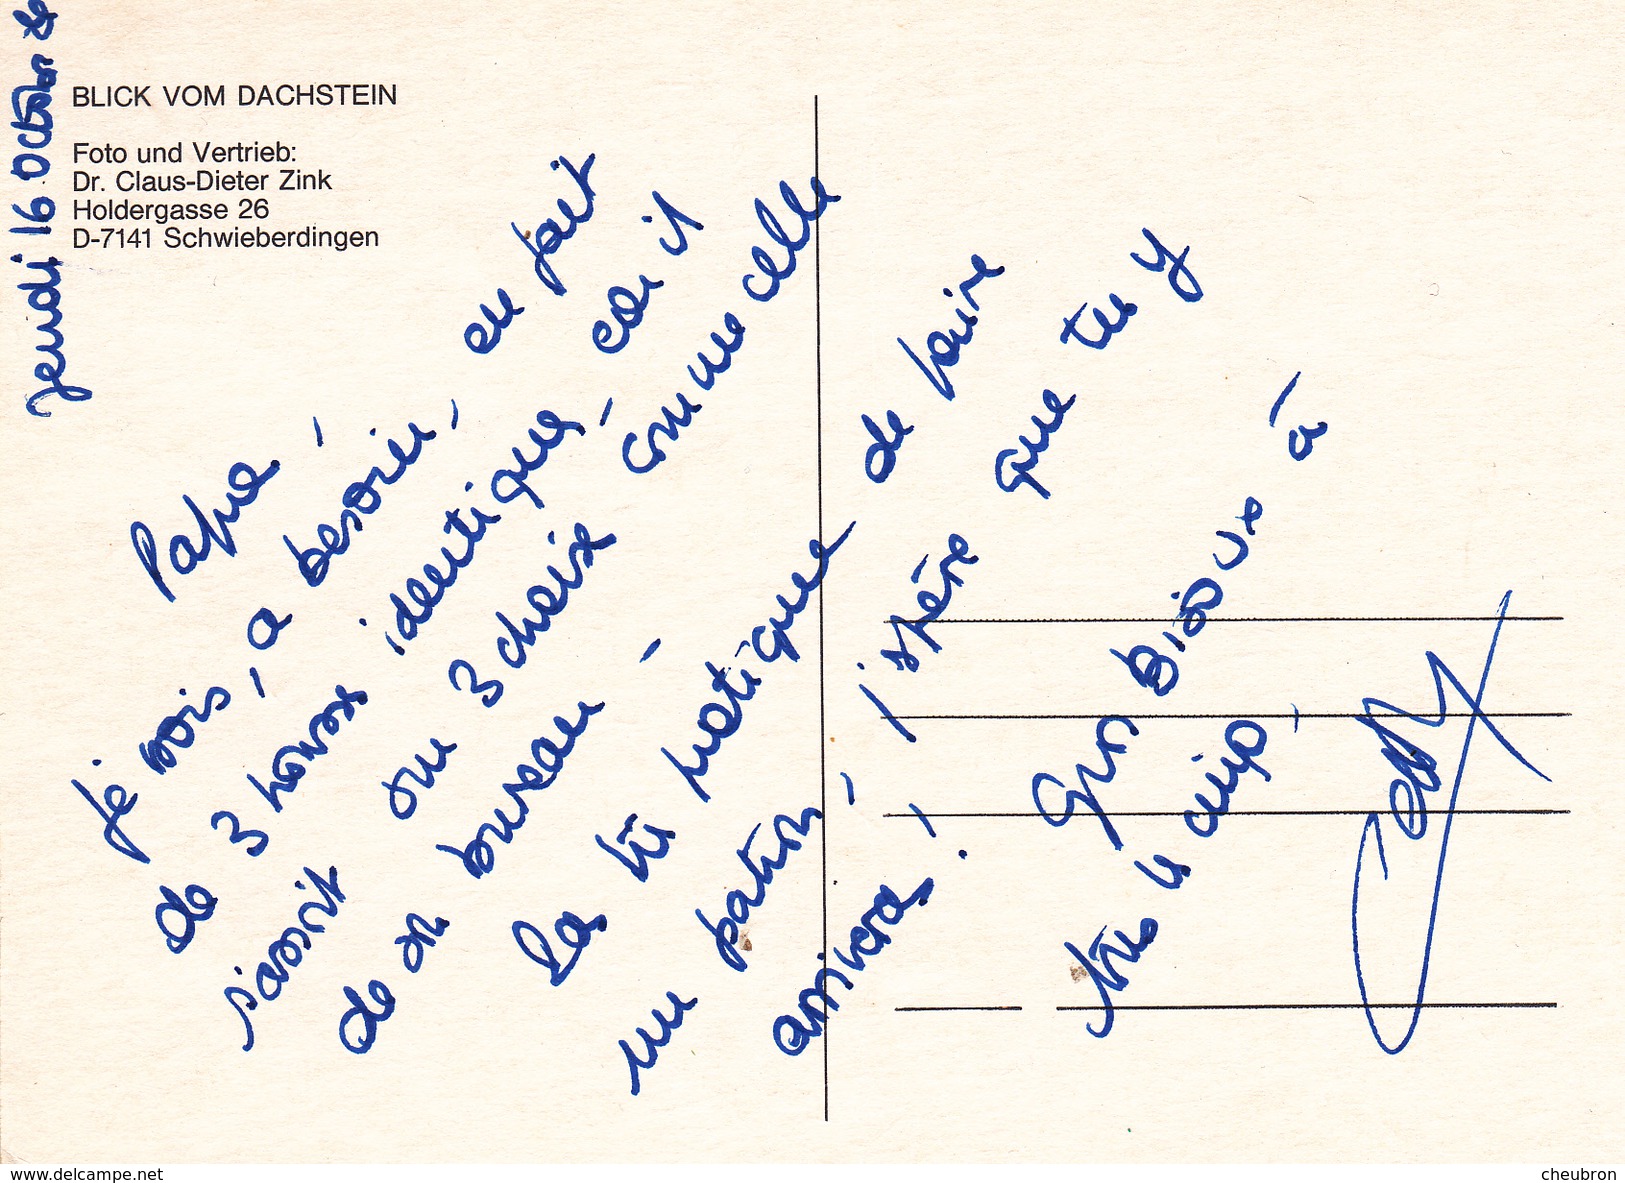 Jeudi 16 Octobre
BLICK VOM DACHSTEIN
Foto und Vertrieb:
Dr. Claus-Dieter Zink
Holdergasse 26
D-7141 Schwieberdingen
Papa -
Je vais, a besoin, en fait
de 3 housses identique, car il
s'assoit sur 3 chaise comme celle
de son bureau -
La très pratique de faire
un patron - J'espère que tu y
arriveras !
Gros Bisous à
tous
delcampe.net
cheubron